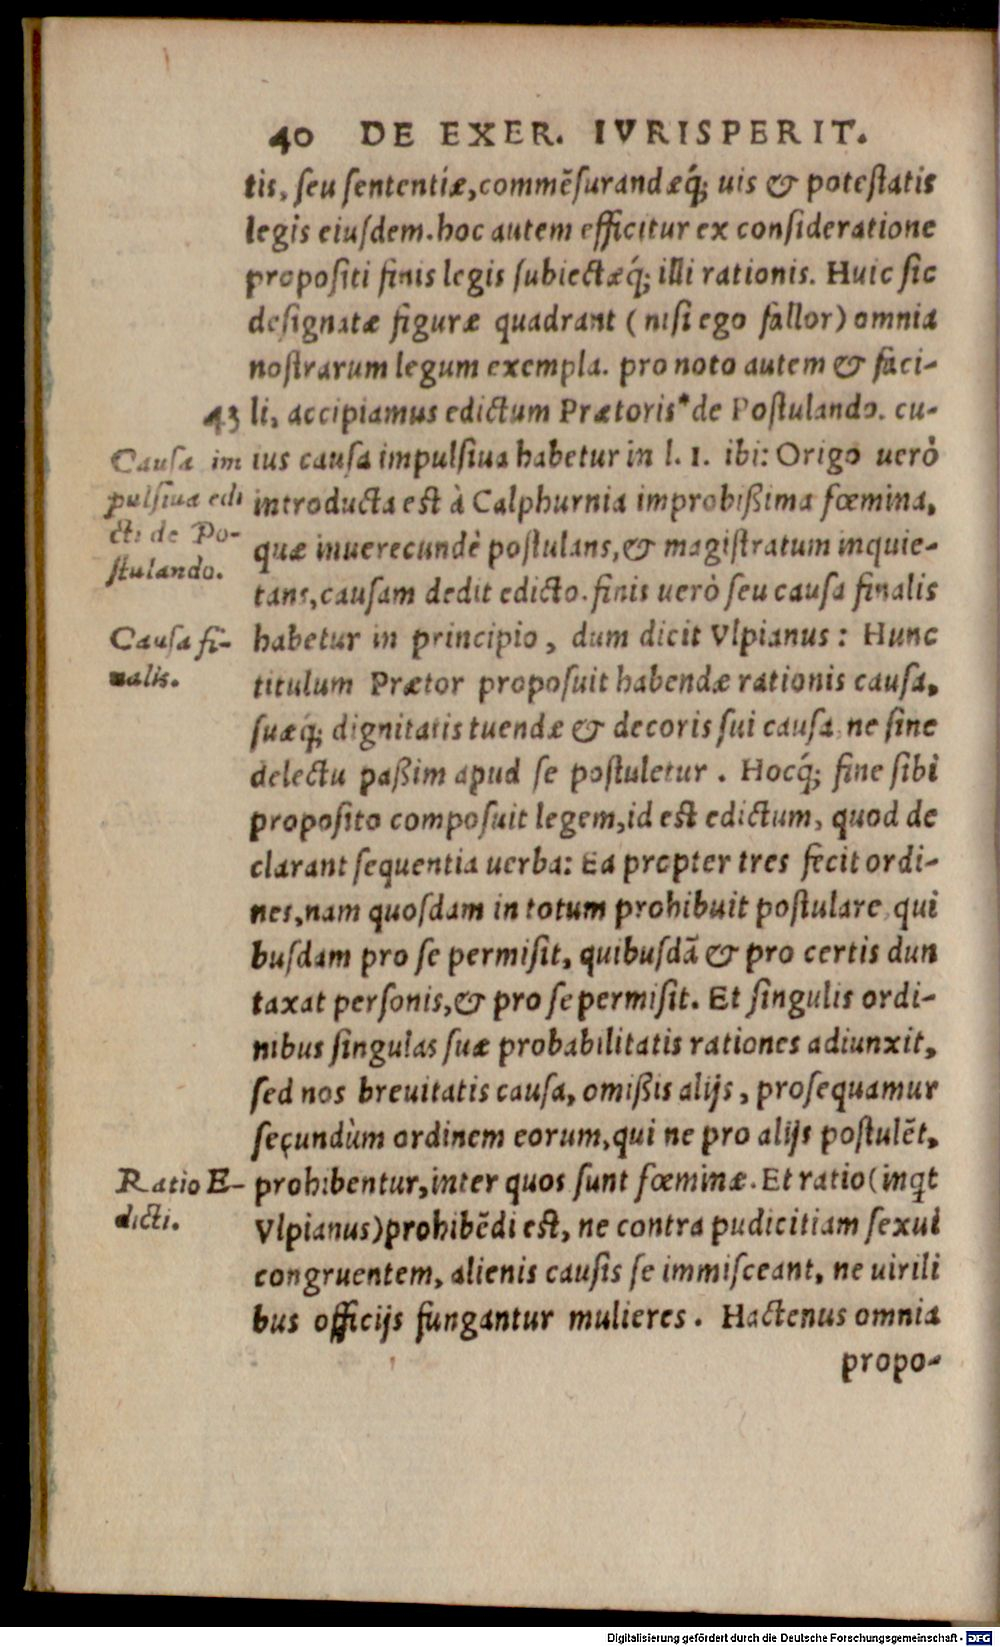 40 DE EXER. IVRISPERIT.
tis, seu sententiæ, commẽsurandæq́; uis & potestatis
legis eiusdem. hoc autem efficitur ex consideratione
propositi finis legis subiectæq́; illi rationis. Huic sic
designatæ figuræ quadrant (nisi ego fallor) omnia
nostrarum legum exempla. pro noto autem & faci-
43 li, accipiamus edictum Prætoris* de Postulando. cu-
Causa im
pulsiua edi
cti de Po-
stulando.
ius causa impulsiua habetur in l. 1. ibi: Origo uerò
introducta est à Calphurnia improbißima fœmina,
quæ inuerecundè postulans, & magistratum inquie-
tans, causam dedit edicto. finis uerò seu causa finalis
Causa fi-
nalis.
habetur in principio, dum dicit Vlpianus: Hunc
titulum Prætor proposuit habendæ rationis causa,
suæq́; dignitatis tuendæ & decoris sui causa, ne sine
delectu paßim apud se postuletur. Hocq́; fine sibi
proposito composuit legem, id est edictum, quod de
clarant sequentia uerba: Ea propter tres fecit ordi-
nes, nam quosdam in totum prohibuit postulare, qui
busdam pro se permisit, quibusdã & pro certis dun
taxat personis, & pro se permisit. Et singulis ordi-
nibus singulas suæ probabilitatis rationes adiunxit,
sed nos breuitatis causa, omißis alijs, prosequamur
secundùm ordinem eorum, qui ne pro alijs postulẽt,
Ratio E-
dicti.
prohibentur, inter quos sunt fœminæ. Et ratio (inq̃t
Vlpianus) prohibẽdi est, ne contra pudicitiam sexui
congruentem, alienis causis se immisceant, ne uirili
bus officijs fungantur mulieres. Hactenus omnia
propo-
Digitalisierung gefördert durch die Deutsche Forschungsgemeinschaft - DFG